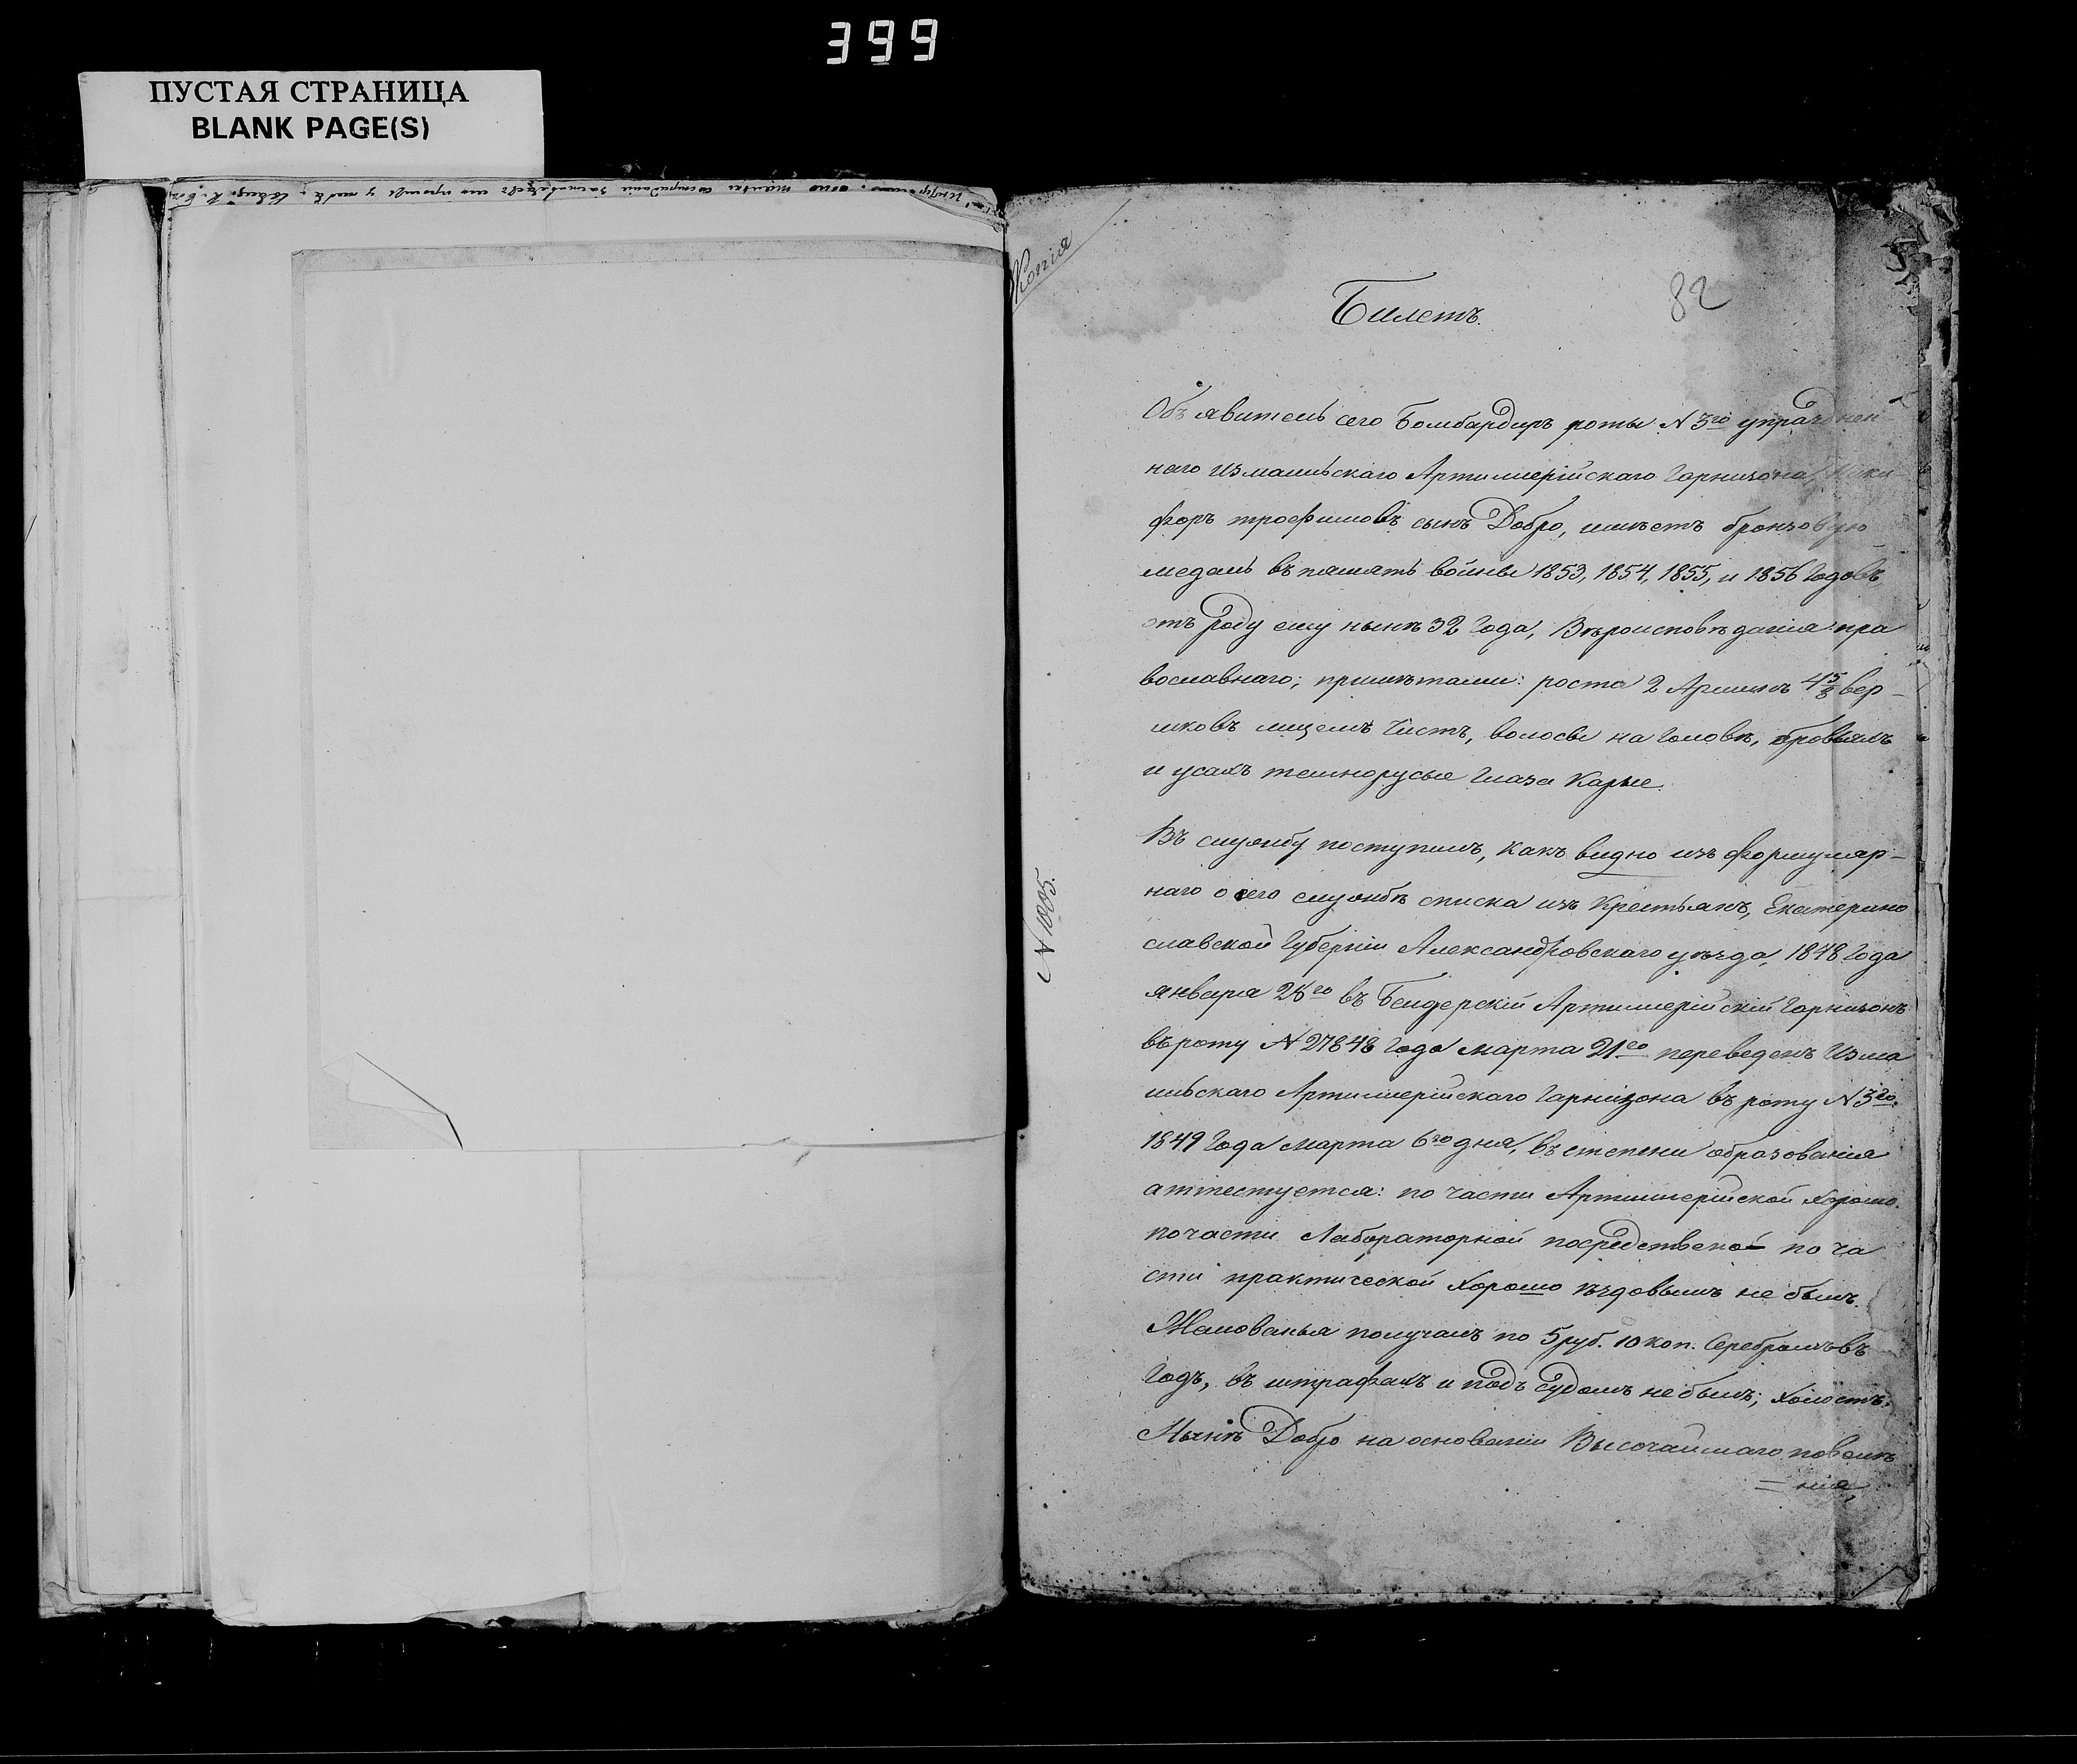 399
ПУСТАЯ СТРАНИЦА
BLANK PAGE(S)
Копія
82
Билетъ.
Объявитель сего Бомбардиръ роты N 3го упразднен
наго Измаильскаго Артиллерійскаго Горнизона, Ники
форъ трофимовъ сынъ Добро, имѣетъ бронзовую
медаль въ память войны 1853, 1854, 1855, и 1856 Годовъ,
отъ роду ему нынѣ 32 Года, Вѣроисповѣданія пра
вославнаго; примѣтами: роста 2 Аршинъ 4 5/8 вер-
шковъ лицемъ Чистъ, волосы на Головѣ, бровяхъ
и усахъ темнорусые Глаза Карые.
Въ службу поступилъ, какъ видно изъ формуляр-
наго о его службѣ списка изъ Крестьянъ, Екатерино
славской Губерніи Александровскаго уѣзда, 1848 Года
января 28го въ Бендерскій Артиллерійскій Горнизонъ
въ роту N 2 1848 Года марта 21го переведенъ Изма
ильскаго Артиллерійскаго Гарнизона въ роту N 3го.
1849 Года марта 6го дня, въ степени образованія
аттестуется: по части Артиллерійской Хорошо.
по части Лабораторной посредствено по ча
сти практической Хорошо ѣздовымъ не былъ.
Жалованья получалъ по 5 руб. 10 коп. Серебромъ въ
Годъ, въ штрафахъ и подъ Судомъ не былъ; Холостъ.
Нынѣ Добро на основаніи Высочайшаго повелѣ
= нія,
N 1005.